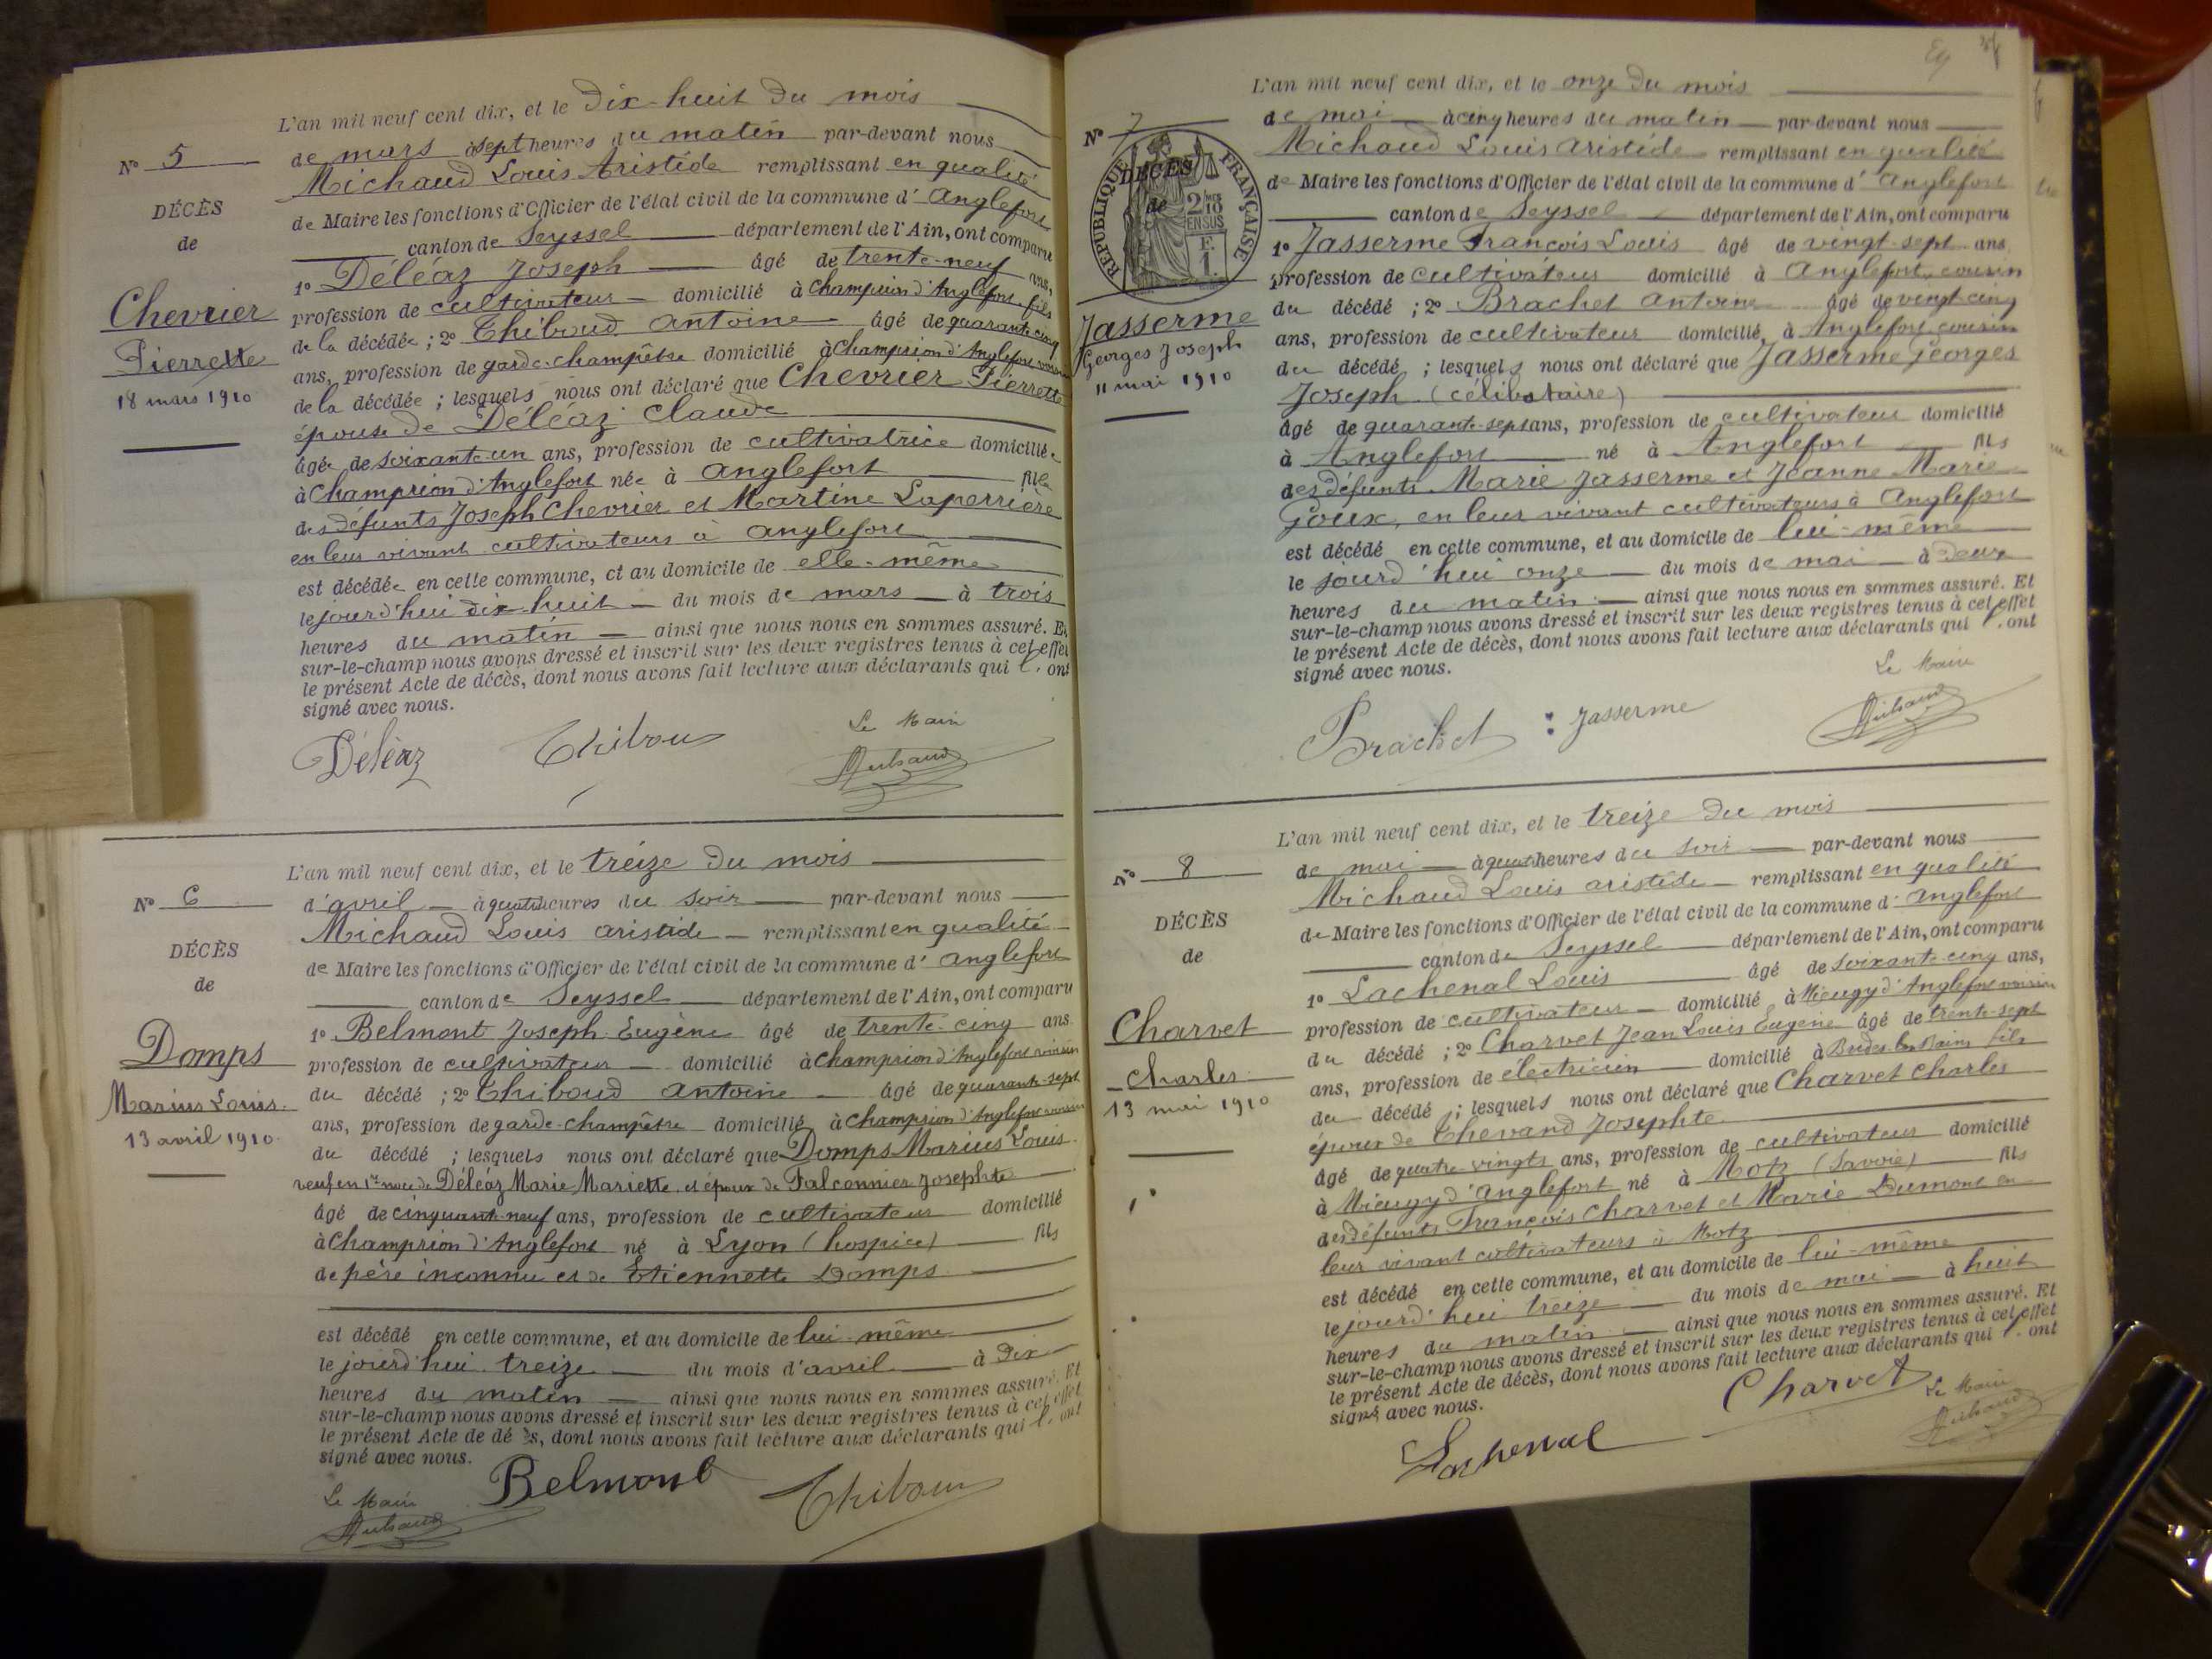 L'an mil neuf cent dix, et le dix-huit du mois
de mars à sept heures du matin par-devant nous
Nº 5
Michaud Louis Aristide remplissant en qualité
de Maire les fonctions d'Officier de l'état civil de la commune d' Anglefort
DÉCÈS
de
canton de Seyssel département de l'Ain, ont comparu
1º Déléaz Joseph âgé de trente-neuf ans,
profession de cultivateur domicilié à Champrion d'Anglefort fils
Chevrier
Pierrette
18 mars 1910
de la décédée ; 2º Thiboud Antoine âgé de quarante-cinq
ans, profession de garde-champêtre domicilié à Champrion d'Anglefort voisin
de la décédée ; lesquels nous ont déclaré que Chevrier Pierrette
épouse de Déléaz Claude
âgée de soixante-un ans, profession de cultivatrice domiciliée
à Champrion d'Anglefort née à Anglefort fille
des défunts Joseph Chevrier et Martine Laperrière
en leur vivant cultivateurs à Anglefort
est décédée en cette commune, et au domicile de elle-même
le jourd'hui dix-huit du mois de mars à trois
heures du matin ainsi que nous nous en sommes assuré. Et
sur-le-champ nous avons dressé et inscrit sur les deux registres tenus à cet effet
le présent Acte de décès, dont nous avons fait lecture aux déclarants qui l'ont
signé avec nous.
Le Maire
Déléaz Thiboud Michaud
L'an mil neuf cent dix, et le treize du mois
Nº 6
d'avril à quatre heures du soir par-devant nous
Michaud Louis Aristide remplissant en qualité
DÉCÈS
de
de Maire les fonctions d'Officier de l'état civil de la commune d' Anglefort
canton de Seyssel département de l'Ain, ont comparu
1º Belmont Joseph Eugène âgé de trente-cinq ans
Domps
Marius Louis.
13 avril 1910.
profession de cultivateur domicilié à Champrion d'Anglefort voisin
du décédé ; 2º Thiboud Antoine âgé de quarante-sept
ans, profession de garde-champêtre domicilié à Champrion d'Anglefort voisin
du décédé ; lesquels nous ont déclaré que Domps Marius Louis
veuf en 1res noces de Déléaz Marie Mariette et époux de Falconnier Josephte
âgé de cinquante-neuf ans, profession de cultivateur domicilié
à Champrion d'Anglefort né à Lyon (hospice) fils
de père inconnu et de Etiennette Domps
est décédé en cette commune, et au domicile de lui-même
le jourd'hui treize du mois d'avril à dix
heures du matin ainsi que nous nous en sommes assuré. Et
sur-le-champ nous avons dressé et inscrit sur les deux registres tenus à cet effet
le présent Acte de dé s, dont nous avons fait lecture aux déclarants qui l'ont
signé avec nous.
Le Maire
Michaud Belmont Thiboud
L'an mil neuf cent dix, et le onze du mois
Nº 7
de mai à cinq heures du matin par-devant nous
Michaud Louis Aristide remplissant en qualité
RÉPUBLIQUE FRANÇAISE
2/10 EN SUS
F. 1.
DÉCÈS
de
de Maire les fonctions d'Officier de l'état civil de la commune d' Anglefort
canton de Seyssel département de l'Ain, ont comparu
1º Jasserme François Louis âgé de vingt-sept ans,
profession de cultivateur domicilié à Anglefort cousin
Jasserme
Georges Joseph
11 mai 1910
du décédé ; 2º Brachet Antoine âgé de vingt-cinq
ans, profession de cultivateur domicilié à Anglefort cousin
du décédé ; lesquels nous ont déclaré que Jasserme Georges
Joseph (célibataire)
âgé de quarante-sept ans, profession de cultivateur domicilié
à Anglefort né à Anglefort fils
des défunts Marie Jasserme et Jeanne Marie
Goux, en leur vivant cultivateurs à Anglefort
est décédé en cette commune, et au domicile de lui-même
le jourd'hui onze du mois de mai à deux
heures du matin ainsi que nous nous en sommes assuré. Et
sur-le-champ nous avons dressé et inscrit sur les deux registres tenus à cet effet
le présent Acte de décès, dont nous avons fait lecture aux déclarants qui l'ont
signé avec nous.
Le Maire
Brachet Jasserme Michaud
L'an mil neuf cent dix, et le treize du mois
Nº 8
de mai à quatre heures du soir par-devant nous
Michaud Louis Aristide remplissant en qualité
DÉCÈS
de
de Maire les fonctions d'Officier de l'état civil de la commune d' Anglefort
canton de Seyssel département de l'Ain, ont comparu
1º Lachenal Louis âgé de soixante-cinq ans,
Charvet
Charles
13 mai 1910
profession de cultivateur domicilié à Mieugy d'Anglefort voisin
du décédé ; 2º Charvet Jean Louis Eugène âgé de trente-sept
ans, profession de électricien domicilié à Brides-les-Bains fils
du décédé ; lesquels nous ont déclaré que Charvet Charles
époux de Thevand Josephte
âgé de quatre-vingts ans, profession de cultivateur domicilié
à Mieugy d'Anglefort né à Motz (Savoie) fils
des défunts François Charvet et Marie Dumont en
leur vivant cultivateurs à Motz
est décédé en cette commune, et au domicile de lui-même
le jourd'hui treize du mois de mai à huit
heures du matin ainsi que nous nous en sommes assuré. Et
sur-le-champ nous avons dressé et inscrit sur les deux registres tenus à cet effet
le présent Acte de décès, dont nous avons fait lecture aux déclarants qui l'ont
signé avec nous.
Lachenal Charvet Le Maire
Michaud